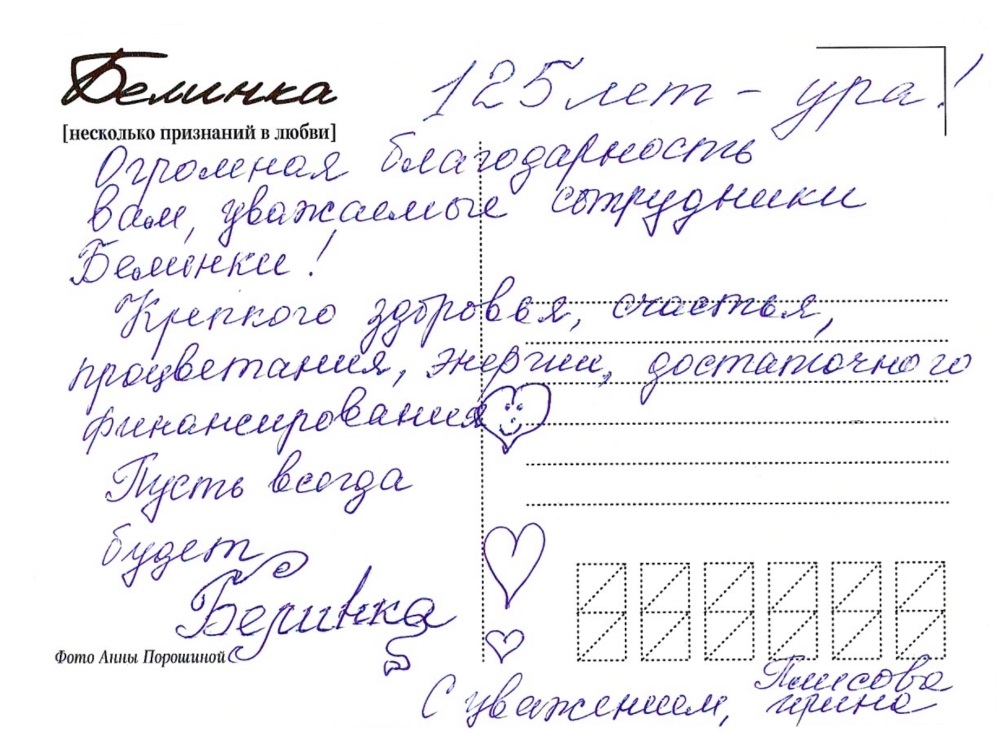 Белинка
[несколько признаний в любви]
125 лет - ура!
Огромная благодарность
вам, уважаемые сотрудники
Белинки!
Крепкого здоровья, счастья,
процветания, энергии, достаточного
финансирования
Пусть всегда
будет
Белинка
Фото Анны Порошиной
С уважением, Ирина